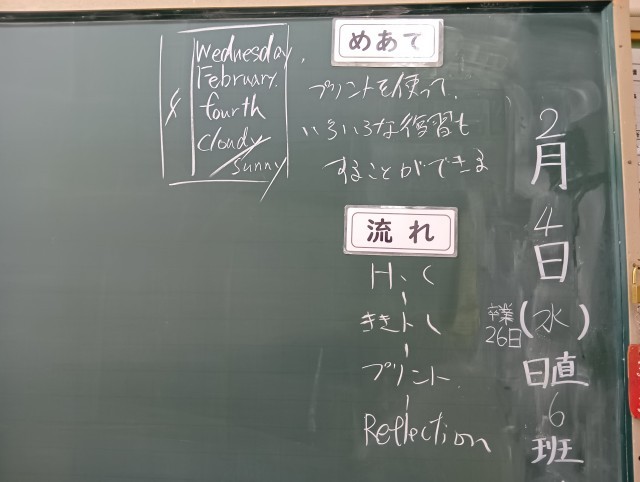 Wednesday.
February.
fourth
cloudy
sunny
めあて
プリントを使って、
いろいろな復習も
することができる
流れ
H、C
ききトレ
プリント
Reflection
2月4日
(水)
卒業
26日
日直
6班